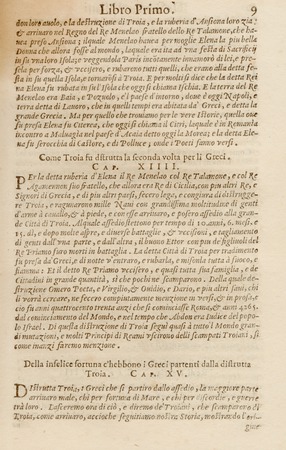 Libro Primo. 9
don loro auolo, e la destruttione di Troia, e la ruberia d'Ansiona loro zia:
& arriuaro nel Regno del Re Menelao fratello dello Re Talamone, che ha-
uea presa Ansiona; ilquale Menelao hauea per moglie Elena la piu bella
Donna che allora fosse al mondo, laquale era ita ad vna festa di Sacrificij
in su vna loro Isola; e veggendola Paris incontinente innamorò di lei, e pre-
sela per forza, & vccisero, e rubarono tutti quelli, che erano alla detta fe-
sta in su quella Isola, e tornarsi à Troia. E per molti si dice che la detta Rei
na Elena fu rubata in su l'Isola che oggi si chiama Ischia. E la terra del Re
Menelao era Baia, e Pozzuolo, e'l paese d'intorno, doue è oggi Napoli, e
terra detta di Lauoro, che in quelli tempi era abitata da' Greci, e detta la
grande Grecia. Ma per quello che trouiamo per le vere Istorie, quella on-
de fu presa Elena fu Citerea, che oggi si chiama il Citri, laquale è in Romania
contro a Maluagia nel paese d'Acaia detto oggi la Morea; e la detta Ele-
na fu serocchia di Castore, e di Polluce; onde i Poeti fanno versi.
Come Troia fu distrutta la seconda volta per li Greci.
CAP. XIIII.
PEr la detta ruberia d'Elena il Re Menelao col Re Talamone, e col Re
Agamemnon suo fratello, che allora era Re di Cicilia, con piu altri Re, e
Signori di Grecia, e di piu altri paesi, fecero lega, e congiura di distrugge-
re Troia, e raguneranno mille Naui con grandissima moltitudine di genti
d'arme à cauallo, & à piede, e con esse arriuaro, e posero assedio alla gran-
de Città di Troia. Alquale assedio stettono per tempo di 10. anni, 6. mesi, e
15. dì, e dopo molte aspre, e diuerse battaglie, & vccisioni, e tagliamento
di genti dall'vna parte, e dall'altra, il buono Ettor con piu de figliuoli del
Re Priamo furo morti in battaglia. La detta Città di Troia per tradimento
fu presa da' Greci, e di notte v'entraro, e rubarla, e misesla tutta à fuoco, e
fiamma: Et il detto Re Priamo vccisero, e quasi tutta sua famiglia, e de'
Cittadini in grande quantità, sì che pochi ne scamparono. Della quale di-
struzione Omero Poeta, e Virgilio, & Ouidio, e Dario, e piu altri saui, chi
li vorrà cercare, ne fecero compiutamente menzione in versi, & in prosa, e
ciò fu anni quattrocento trenta anzi che si cominciasse Roma, & anni 4265.
dal cominciamento del Mondo, e nel tempo che Abdon era Iudice del popo-
lo Israel. Di questa distruzione di Troia seguì quasi à tutto'l Mondo gran-
di mutazioni, e molti Principi di Reami vscirono delli scampati Troiani, sì
come innanzi faremo menzione.
Della infelice fortuna c'hebbono i Greci partenti dalla distrutta
Troia. CAP. XV.
DIstrutta Troia, i Greci che si partiro dallo assedio, la maggiore parte
arriuaro male, chi per fortuna di Mare, e chi per discordie, e guerre
trà loro. Lasceremo ora di ciò, e diremo de' Troiani, che scamparono di
Troia, come arriuaro, acciochè seguitiamo nostra Storia, mostrando l'ori-
gine